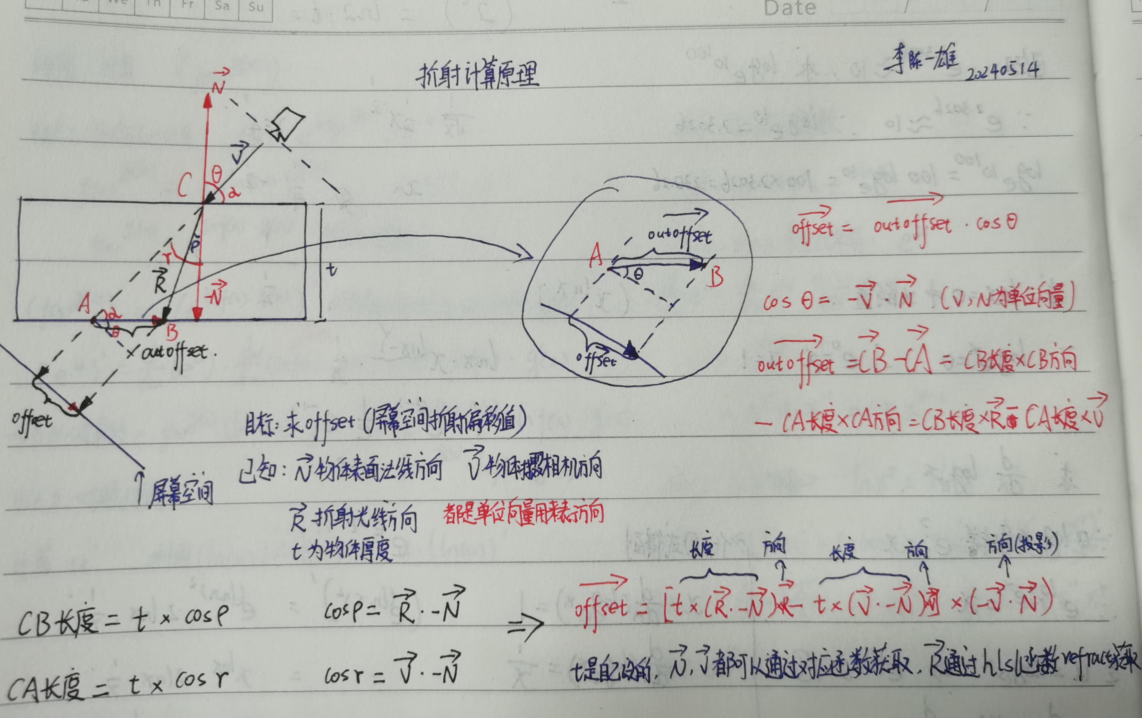 Th Fr Sa Su
Date
折射计算原理
李陈一雄 20240514
N
V
C θ α
P
r
R
t
-N
A α
θ B
outoffset.
offset
屏幕空间
outoffset
A θ B
offset
offset = outoffset · cosθ
cosθ = -V · N (V,N为单位向量)
outoffset = CB - CA = CB长度×CB方向
- CA长度×CA方向 = CB长度×R - CA长度×V
目标: 求offset (屏幕空间折射偏移值)
已知: N 物体表面法线方向 V 物体相机方向
R 折射光线方向 都是单位向量用来表示方向
t为物体厚度
长度 方向 长度 方向 方向(投影)
CB长度 = t × cosρ cosρ = R · -N
⇒ offset = [t × (R · -N) R - t × (V · -N) V] × (-V · N)
CA长度 = t × cosr cosr = V · -N
t是自己设的, N, V都可以通过对应函数获取, R通过hlsl函数refract获取